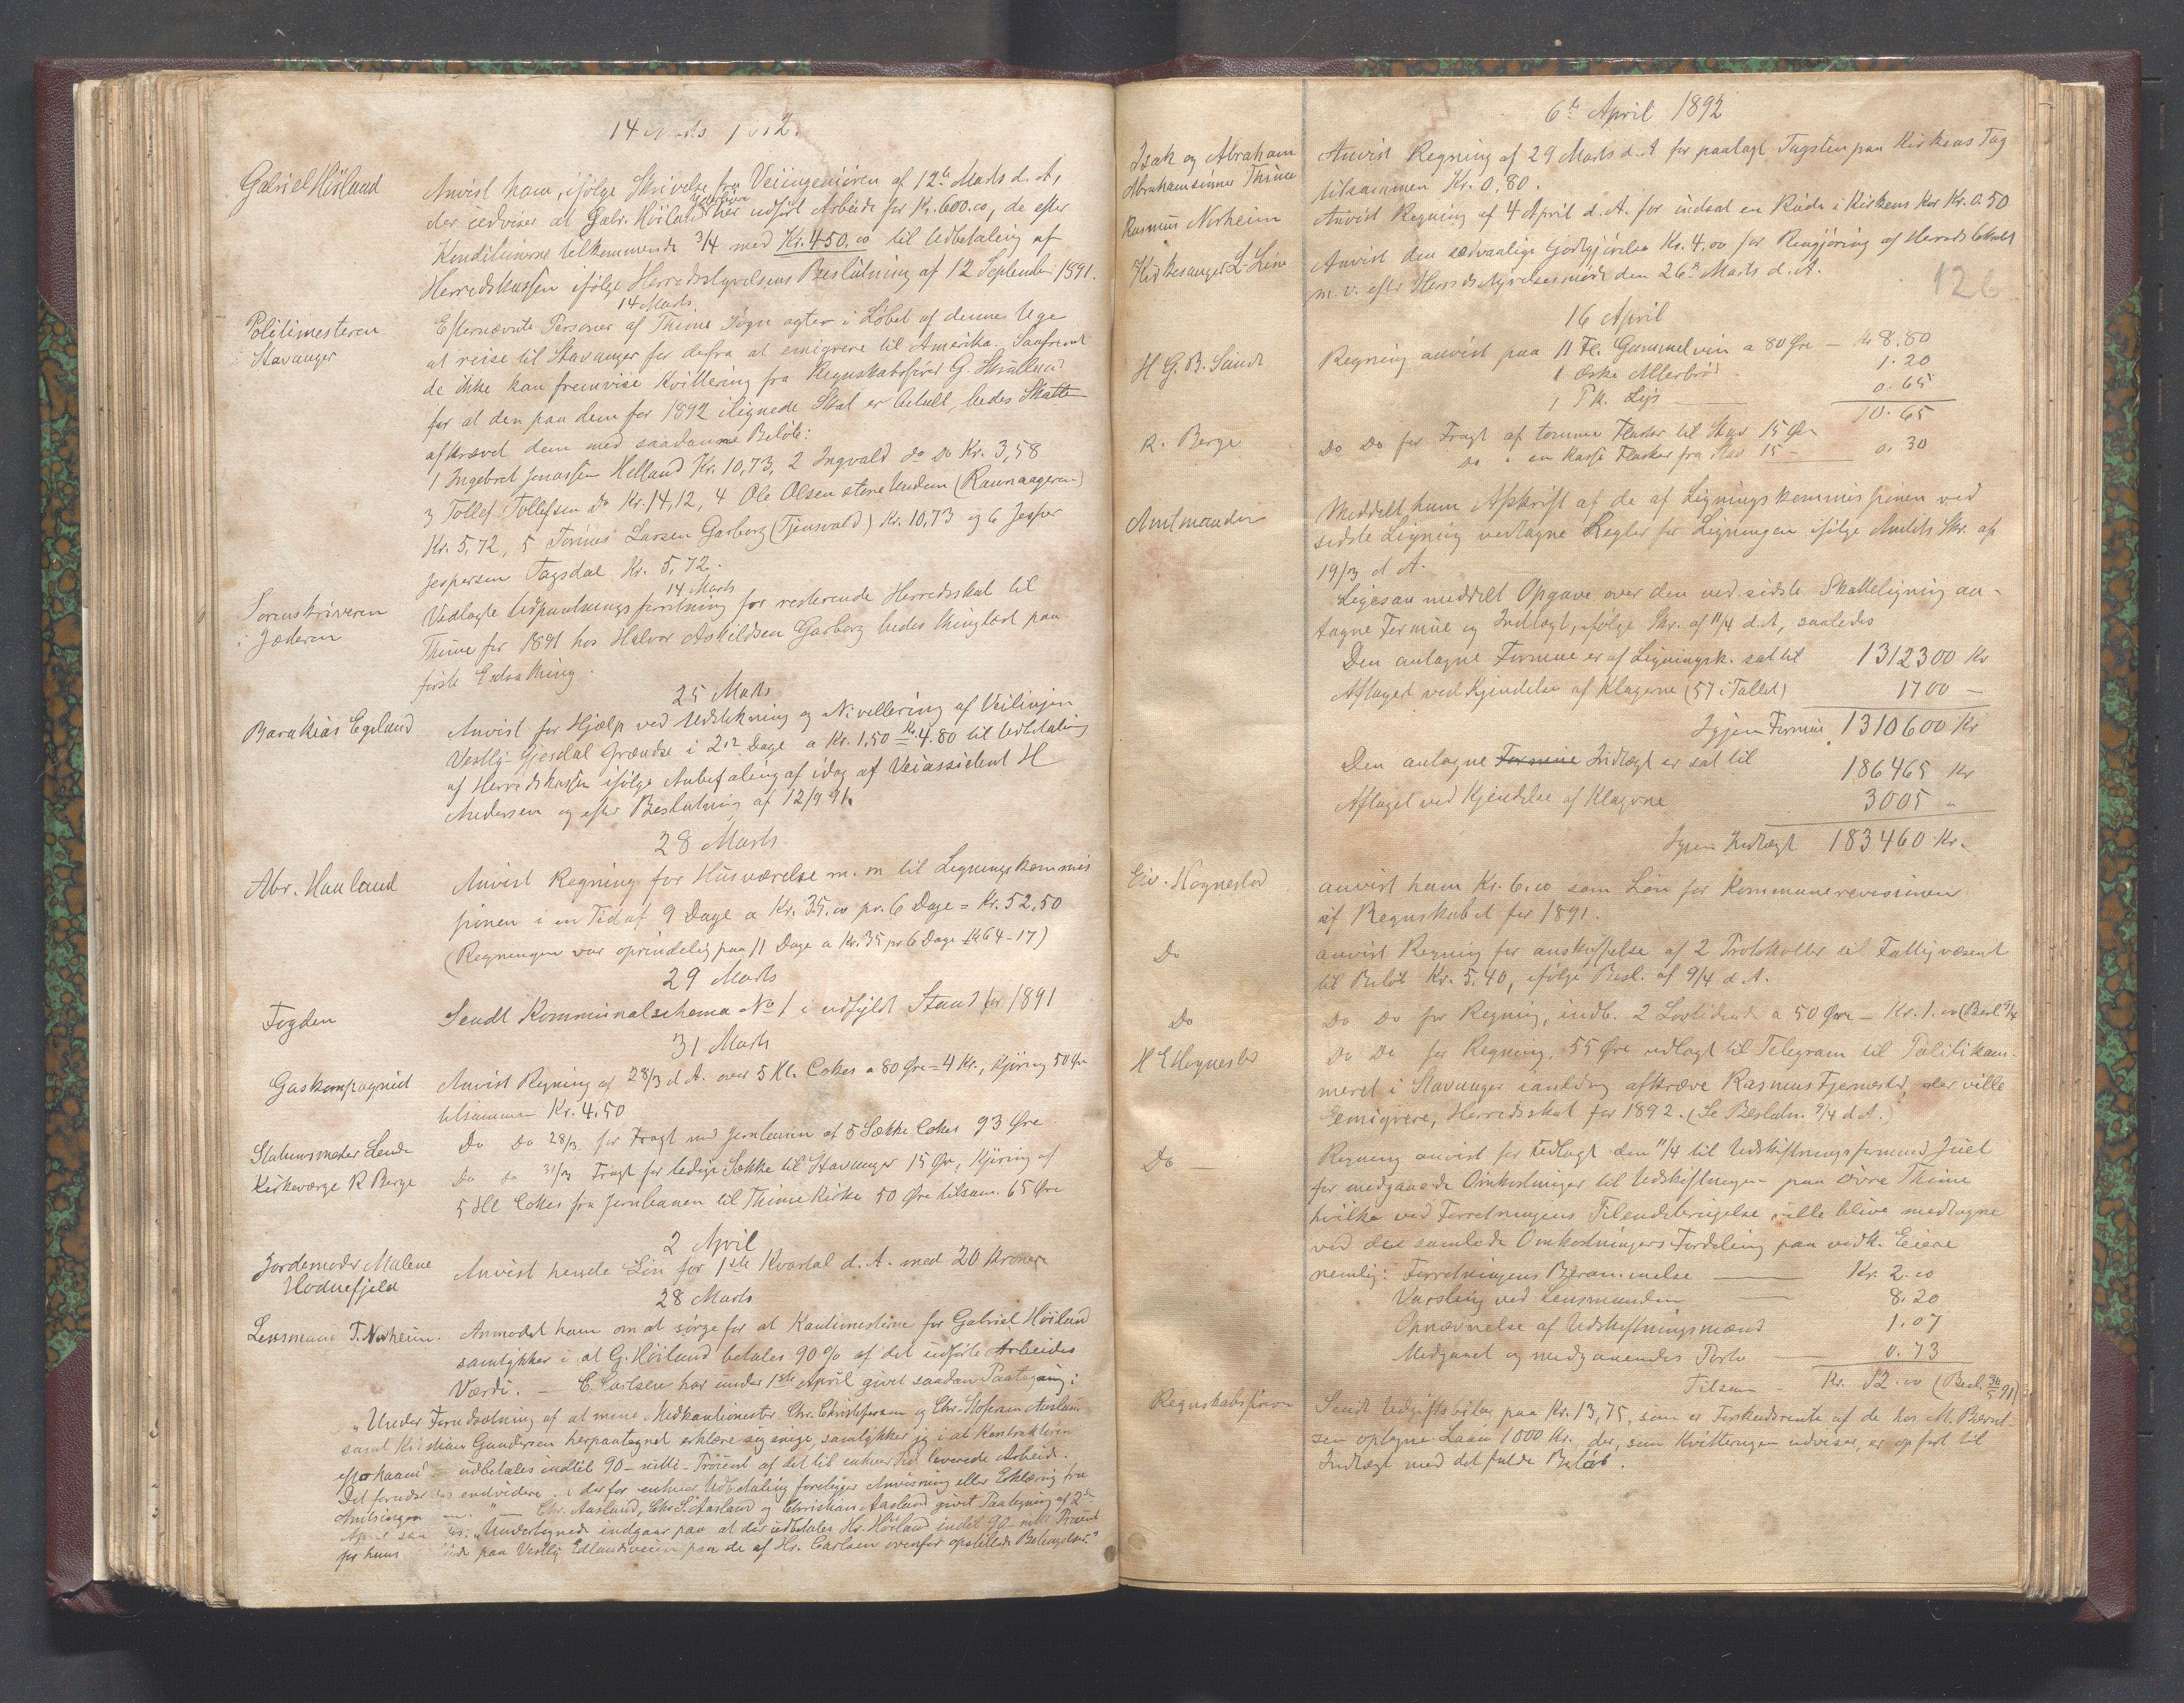 14 Marts 1892.
Gabriel Höiland
Anvist ham, ifölge Skrivelse fra Veiingeniören af 12te Marts d. A,
der udviser at Gabr. Höiland har udfört Arbeide for Kr. 600.00, de efter
Konditionerne tilkommende 3/4 med Kr. 450.00 til Udbetaling af
Herredskassen ifölge Herredsstyrelsens Beslutning af 12 September 1891.
14 Marts
Politimesteren
i Stavanger
Efternævnte Personer af Thime Sogn agter i Löbet af denne Uge
at reise til Stavanger for derfra at emigrere til Amerika. Saafremt
de ikke kan fremvise Kvittering fra Regnskabsförer G. Skrulland
for at den paa dem for 1892 ilignede Skat er betalt, bedes Skatten
afkrævet dem med saadanne Belöb:
1 Ingebret Jonassen Helland Kr. 10,73, 2 Ingvald do Do Kr. 3,58
3 Tollef Tollefsen Do Kr. 14,12, 4 Ole Olsen store Undem (Raunaageren)
Kr. 5,72, 5 Tönnes Larsen Garborg (Tjensvold) Kr. 10,73 og 6 Jesper
Jespersen Tagsdal Kr. 5,72.
14 Marts
Sorenskriveren
i Jæderen
Vedlagte Udpantningsforretning for resterende Herredsskat til
Thime for 1891 hos Halvor Askildsen Garborg bedes thinglæst paa
förste Extrathing.
25 Marts
Barakias Egeland
Anvist for Hjælp ved Udstikning og Nivellering af Veilinjen
Vestly-Gjesdal Grændse i Dage a Kr. 1,50 = Kr. 4.80 til Udbetaling
af Herredskassen ifölge Anbefaling af idag af Veiassistent H
Andersen og efter Beslutning af 12/9 91.
28 Marts
Abr. Hauland
Anvist Regning for Husværelse m. m til Ligningskommis
sionen i en Tid af 9 Dage a Kr. 35.00 pr. 6 Dage = Kr. 52,50
(Regningen var oprindelig paa 11 Dage a Kr. 35 pr 6 Dage Kr 64-17)
29 Marts
Fogden
Sendt Kommunalschema No 1 i udfyldt Stand for 1891
31 Marts
Gaskompagniet
Anvist Regning af 28/3 d A. over 5 Hl. Cokes a 80 Øre = 4 Kr., Kjöring 50 Øre
tilsammen Kr. 4.50
Stationsmester Lende
Do Do 28/3 for Fragt med Jernbanen af 5 Sække Cokes 93 Øre
Kirkeværge R Berge
Do do 31/3 Fragt for ledige Sække til Stavanger 15 Ør, Kjöring af
5 Hl Cokes fra Jernbanen til Thime Kirke 50 Øre tilsam. 65 Øre
2 April
Jordemoder Malene
Hodnefjeld
Anvist hende Lön for 1ste Kvartal d. A. med 20 Kroner
28 Marts
Lensmand T. Norheim.
Anmodet ham om at sörge for at Kautionisterne for Gabriel Höiland
samtykker i at G. Höiland betales 90% af det udförte Arbeides
Værdi. — E. Carlsen har under 1ste April givet saadan Paategning:
"Under Forudsætning af at mine Medkautionister Chr. Christofersen og Chr. Stofersen Aasland
samt Kristian Gundersen herpaategnet erklære sig enige, samtykker jeg i at Kontraktören
udbetales indtil 90 - nitti - Procent af det til enhver Tid leverede Arbeid.
Det forudsættes endvidere at der for enhver Udbetaling foreligger Anvisning eller Erklæring fra
Amtsingeniören." Chr. Aasland, Chr S. Aasland og Christian Aasland givet Paategning af 2den
April "Undertegnede indgaar paa at der udbetales Hr. Höiland indtil 90 - nitti Procent
paa Vestly Edlandsveien paa de af Hr. Carlsen ovenfor opstillede Betingelser."
6te April 1892
126
Isak og Abraham
Abrahamsönner Thime
Anvist Regning af 29 Marts d. A for paalagt Tagsten paa Kirkens Tag
tilsammen Kr. 0,80.
Rasmus Norheim
Anvist Regning af 4 April d. A. for indsat en Rude i Kirkens Kor Kr. 0.50
Kirkesanger L. Line
Anvist den sædvanlige Godtgjörelse Kr. 4.00 for Rengjöring af Herredslokalet
m. v. efter Herredsstyrelsesmöde den 26de Marts d. A.
16 April
H G. B. Sundt
Regning anvist paa 11 Fl. Gammelvin a 80 Øre — Kr 8.80
1 Æske Alterbröd 1.20
1 Pk. Lys —— 0.65
10.65
R. Berge
Do Do for Fragt af tomme Flasker til Stav 15 Ør
Do " en Kasse Flasker fra Stav 15 — 0.30
Amtmanden
Meddelt ham Afskrift af de af Ligningskommissionen ved
sidste Ligning vedtagne Regler for Ligningen ifölge Amtets Skr. af
19/3 d A.
Ligesaa meddelt Opgave over den ved sidste Skatteligning an-
tagne Formue og Indtægt, ifölge Skr. af 11/4 d. A, saaledes
Den antagne Formue er af Ligningsk. sat til 1312300 Kr
Aftaget ved Kjendelse af Klagerne (57 i Tallet) 1700 —
Igjen Formue 1310600 Kr
Den antagne Formue Indtægt er sat til 186465 Kr
Aftaget ved Kjendelse af Klagerne 3005 "
Igjen Indtægt 183460 Kr.
Eiv. Hognestad
anvist ham Kr. 6.00 som Lön for Kommunerevisionen
af Regnskabet for 1891.
Do
anvist Regning for anskaffelse af 2 Protokoller til Fattigvæsenet
til Belöb Kr. 5.40, ifölge Besl. af 9/4 d. A.
Do
Do Do for Regning, indb. 2 Lovtidende a 50 Øre — Kr. 1.00 (Besl. 9/4
H E Hognestad
Do Do for Regning, 55 Øre udlagt til Telegram til Politikam-
meret i Stavanger afkræve Rasmus Fjermestad, der ville
emigrere, Herredsskat for 1892. (Se Beslutn. 9/4 d A.)
Do —
Regning anvist for Udlagt den 11/4 til Udskiftningsformand Juel
for medgaaede Omkostninger til Udskiftningen paa övre Thime
hvilke ved Forretningens Tilendebringelse ville blive medtagne
ved den samlede Omkostningers Fordeling paa vedk. Eiere
nemlig: Forretningens Berammelse —— Kr. 2.00
Varsling ved Lensmanden —— 8.20
Opnævnelse af Udskiftningsmænd 1.07
Medgaaet og medgaaendes Porto — 0.73
Tilsam — Kr. 12.00 (Besl. 30/5 91)
Regnskabsföreren
Sendt Udgiftsbilag paa Kr. 13,75, som er Forskudsrente af de hos M. Bernt-
sen optagne Laan 1000 Kr. der, som Kvitteringen udviser, er opfört til
Indtægt med det fulde Belöb.